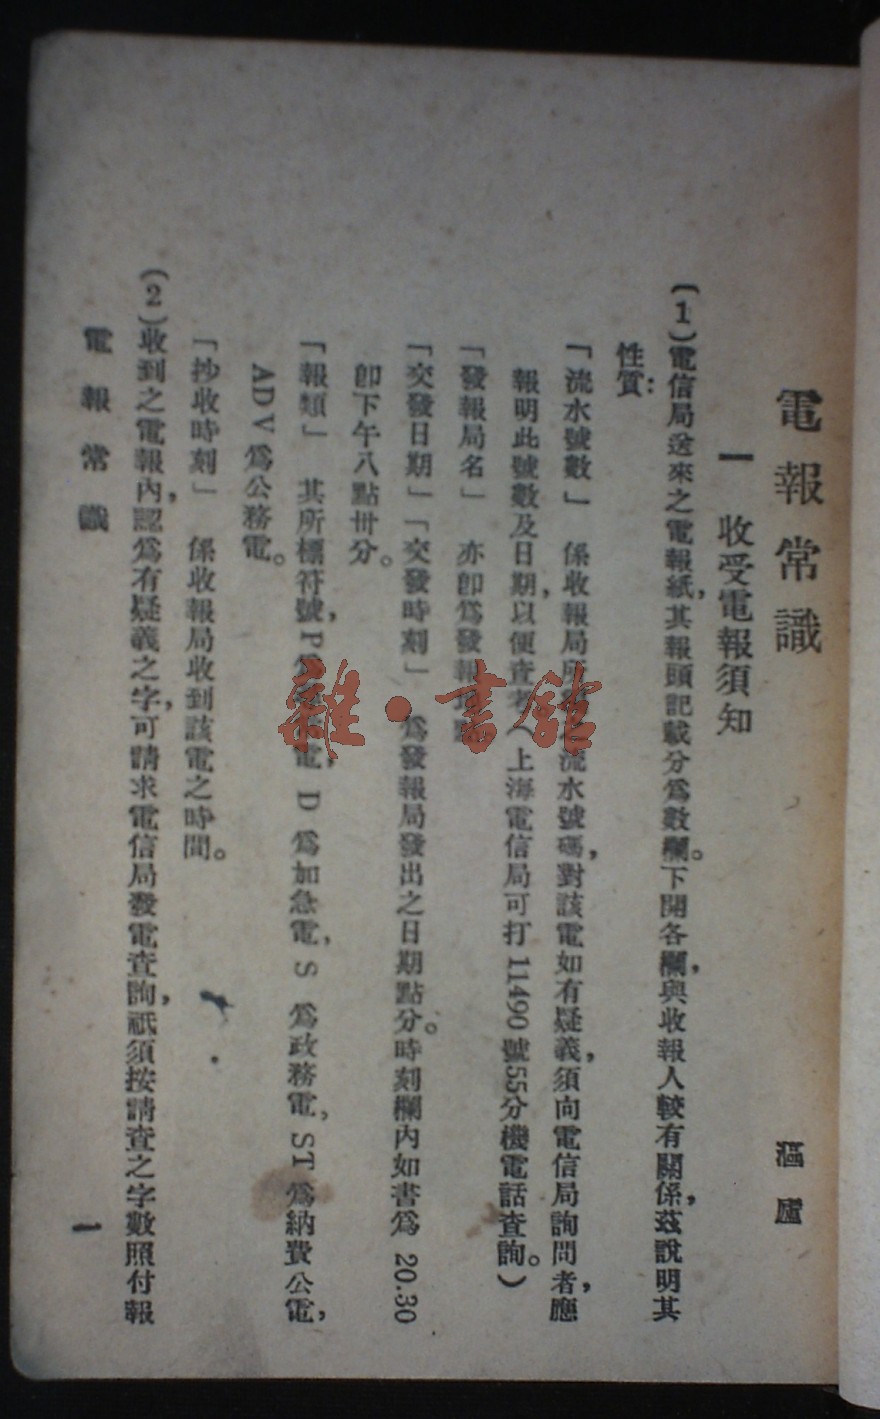 電報常識
漚廬
一 收受電報須知
(1)電信局送來之電報紙，其報頭記載分爲數欄。下開各欄，與收報人較有關係，茲說明其
性質：
「流水號數」 係收報局所 流水號碼，對該電如有疑義，須向電信局詢問者，應
報明此號數及日期，以便查考（上海電信局可打11490號55分機電話查詢。）
「發報局名」 亦卽爲發報
「交發日期」「交發時刻」 爲發報局發出之日期點分。時刻欄內如書爲 20.30
卽下午八點卅分。
「報類」 其所標符號，P爲 電，D 爲加急電，S 爲政務電，ST 爲納費公電，
ADV 爲公務電。
「抄收時刻」 係收報局收到該電之時間。
(2)收到之電報內，認爲有疑義之字，可請求電信局發電查詢，祇須按請查之字數照付報
電報常識
一
雜·書館